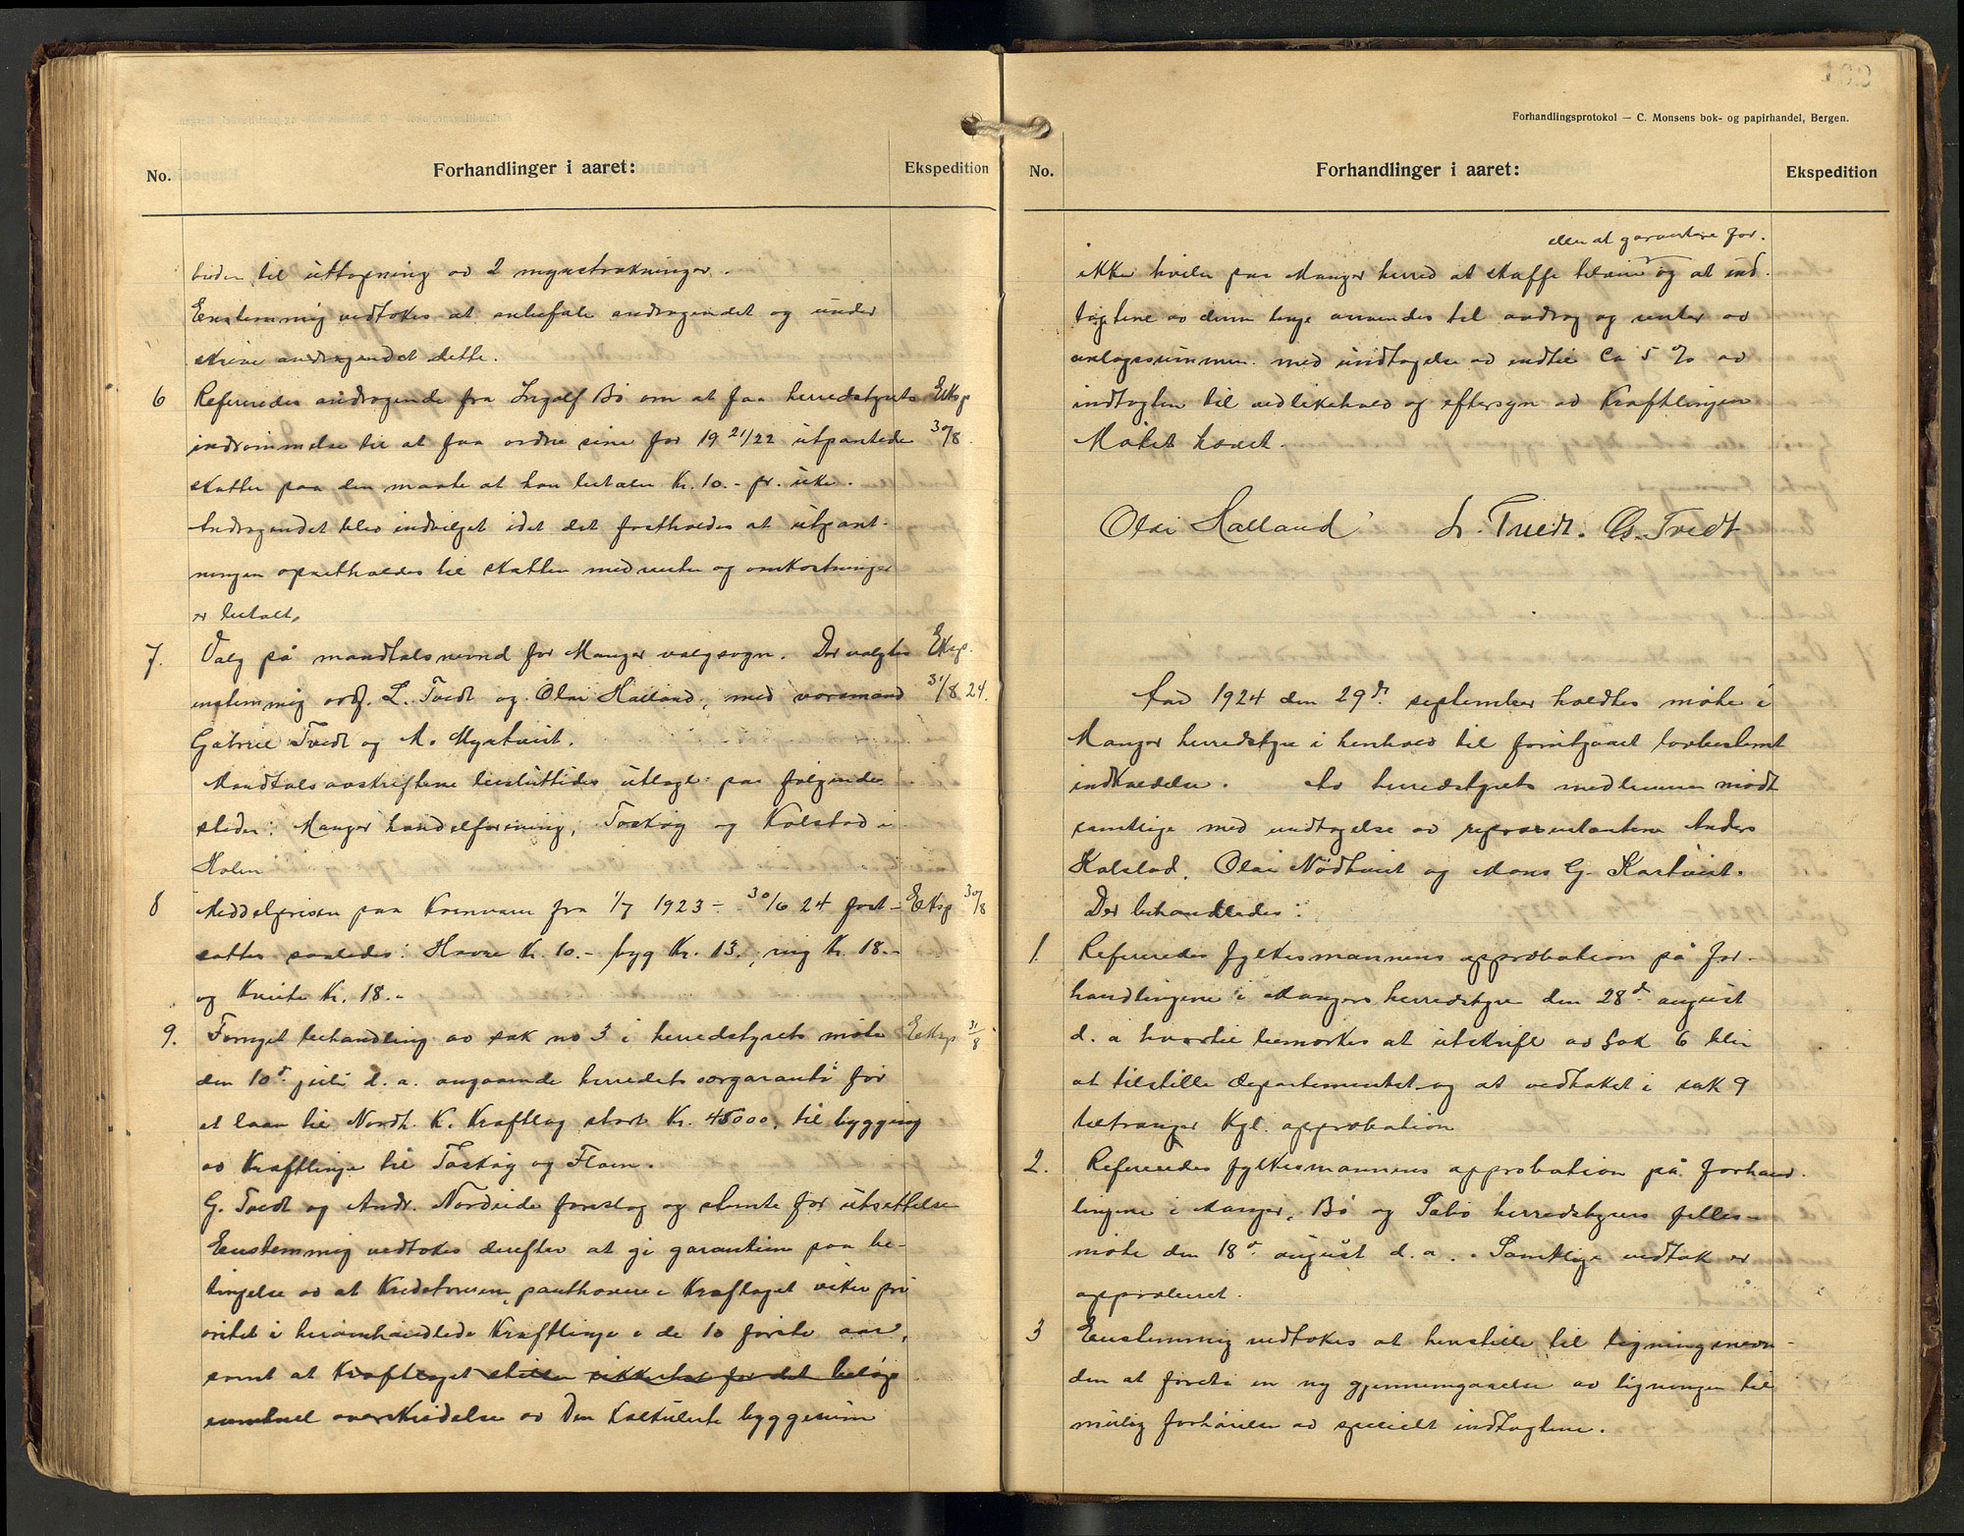 No.
Forhandlinger i aaret:
Ekspedition
til uttapning av 2 myrstrækninger.
Enstemmig vedtokes at anbefale andragendet og under
skrive andragendet dette.
6 Refereredes andragende fra Ingolf Bø om at faa herredstyrets Eksp
indrømmelse til at faa ordne sine for 19 21/22 utpantede 30/8.
skatter paa den maate at han betaler Kr. 10.- pr. uke.
Andragendet blev indvilget idet det forutholdes at utpant-
ningen opretholdes til skatten med renter og omkostninger
er betalt.
7. Valg på mandtalsnevnd for Manger valgsogn. Der valgtes Eksp.
enstemmig ordf. L. Tvedt og Olai Halland, med varamænd 31/8 24.
Gabriel Tvedt og M. Myrtveit.
Mandtalsavskriftene besluttedes utlagt paa følgende
steder: Manger handelforening, Toskøg og Kolstad i
Holen
8 Middelprisen paa Kornvarer fra 1/7 1923 ÷ 30/6 24 fast- Eksp 30/8
sattes saaledes: Havre Kr. 10.- byg Kr. 13., rug Kr. 18.-
og Kveite Kr. 18.-
9. Fornyet behandling av sak no 3 i herredstyrets møte Eksp 31/8
den 10d juli d. a. angaaende herredets garanti for
et laan til Nordh. K. Kraftlag stort Kr. 45000, til bygging
av Kraftlinje til Toskøg og Floen.
G. Tvedt og Andr. Nordeide foreslog og stemte for utsettelse
Enstemmig vedtokes derefter at gi garantien paa be-
tingelse av at Kreditoren, panthavere i Kraftlaget viker pri
oritet i heromhandlede Kraftlinje i de 10 første aar,
samt at Kraftlaget stiller sikkerhet for det beløp
eventuel overskridelse av Den Kalkulerte byggesum
Forhandlingsprotokol — C. Monsens bok- og papirhandel, Bergen.
No.
Forhandlinger i aaret:
Ekspedition
eller at garantere for.
ikke hviler paa Manger herred at skaffe tilveie og at ind
tægtene av denne linje anvendes til avdrag og renter av
anlægssummen med undtagelse av indtil Ca 5 % av
indtægten til vedlikehold og eftersyn av Kraftlinjen
Møtet hævet.
Olai Halland L. Tvedt. G. Tvedt
Aar 1924 den 29de september holdtes møte i
Manger herredstyre i henhold til forutgaaet lovbestemt
indkaldelse. Av herredstyrets medlemmer møtte
samtlige med undtagelse av representantene Anders
Kolstad, Olai Nødtveit og Mons G. Kartveit.
Der behandledes:
1. Refereredes fylkesmannens approbation på for-
handlingene i Manger herredstyre den 28d august
d. a hvortil bemerkes at utskrift av sak 6 blir
at tilstille departementet og at vedtaket i sak 9
tiltrænger Kgl. approbation
2. Refereredes fylkesmannens approbation på forhand
lingene i Manger, Bø og Sæbø herredstyrers felles-
møte den 18d august d. a. Samtlige vedtak er
approberet.
3 Enstemmig vedtokes at henstille til ligningsnevn-
den at foreta en ny gjennemgaaelse av ligningen til
mulig forhøielse av specielt indtægtene.